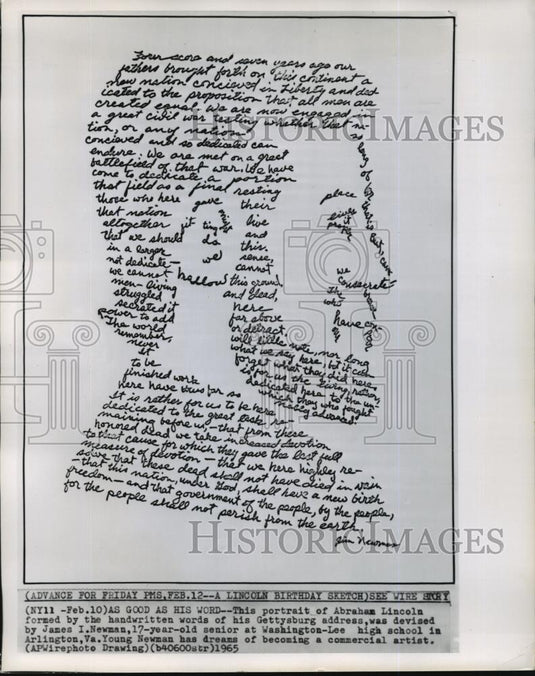 Four score and seven years ago our
fathers brought forth on this continent a
new nation concieved in Liberty and ded
icated to the proposition that all men are
created equal. We are now engaged in
a great civil war testing whether that
tion, or any nation
concieved and so dedicated can
endure. We are met on a great
battlefield of that war. We have
come to dedicate a portion
that field as a final resting
place
those who here gave their
that nation might live
altogether it ting and
that we should do this.
in a larger sense,
not dedicate— we cannot
we cannot hallow this ground.
we consecrate
men—living and dead,
struggled here
secrated it far above
power to add or detract.
The world will little note, nor long
remember, what we say here, but it can
never forget what they did here.
it is for us the living, rather,
to be dedicated here to the un
finished work which they who fought
here have thus far so nobly advanced.
It is rather for us to be here
dedicated to the great task re-
maining before us—that from these
honored dead we take increased devotion
to that cause for which they gave the last full
measure of devotion—that we here highly re-
solve that these dead shall not have died in vain
—that this nation, under God, shall have a new birth
freedom—and that government of the people, by the people,
for the people shall not perish from the earth.
Jim Newman
HISTORIC IMAGES
HISTORIC IMAGES
(ADVANCE FOR FRIDAY PMS,FEB.12--A LINCOLN BIRTHDAY SKETCH)SEE WIRE STORY
(NY11 -Feb.10)AS GOOD AS HIS WORD--This portrait of Abraham Lincoln
formed by the handwritten words of his Gettysburg address,was devised
by James I.Newman,17-year-old senior at Washington-Lee high school in
Arlington,Va.Young Newman has dreams of becoming a commercial artist.
(APWirephoto Drawing)(b40600str)1965